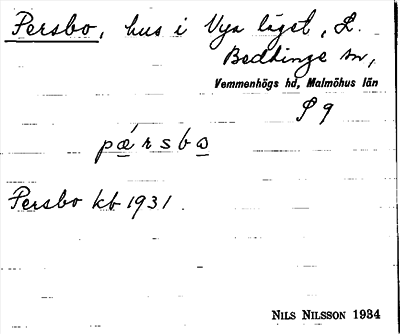 Persbo, hus i Nya läget, L.
Beddinge sn,
Vemmenhögs hd, Malmöhus län
S 9
pǽrsbo
Persbo kb 1931.
NILS NILSSON 1934